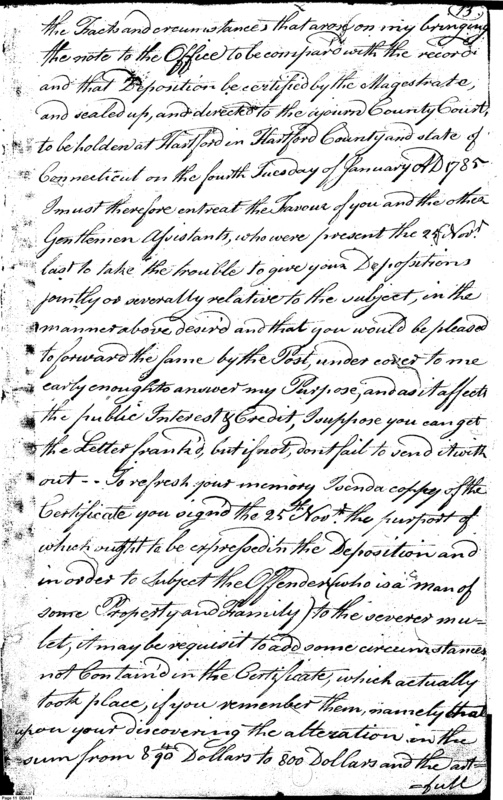 13.
the Facts and circumstances that arose on my bringing
the note to the Office to be compar'd with the record
and that Deposition be certified by the Magestrate,
and sealed up, and directed to the ajourn County Court,
to be holden at Hartford in Hartford County and state of
Connecticut on the fourth Tuesday of January AD 1785
I must therefore entreat the Favour of you and the other
Gentlemen Assistants, who were present the 25 Novr
last to take the trouble to give your Depositions
jointly or severally relative to the subject, in the
manner above desir'd and that you would be pleased
to forward the same by the Post, under cover to me
early enough to answer my Purpose, and as it affects
the public Interest & Credit, I suppose you can get
the Letter frank'd, but if not, dont fail to send it with
out - - To refresh your memory I send a coppy of the
Certificate you signd the 25th Novr. the purport of
which ought to be expressed in the Deposition and
in order to subject the Offender (who is a man of
some Property and Family) to the severer mu-
let, it may be requisit to add some circumstances
not Contain'd in the Certificate, which actually
took place, if you remember them, namely that
upon your discovering the alteration in the
sum from 8 40/90 Dollars to 800 Dollars and the art=
=full
Page 11 DDA01